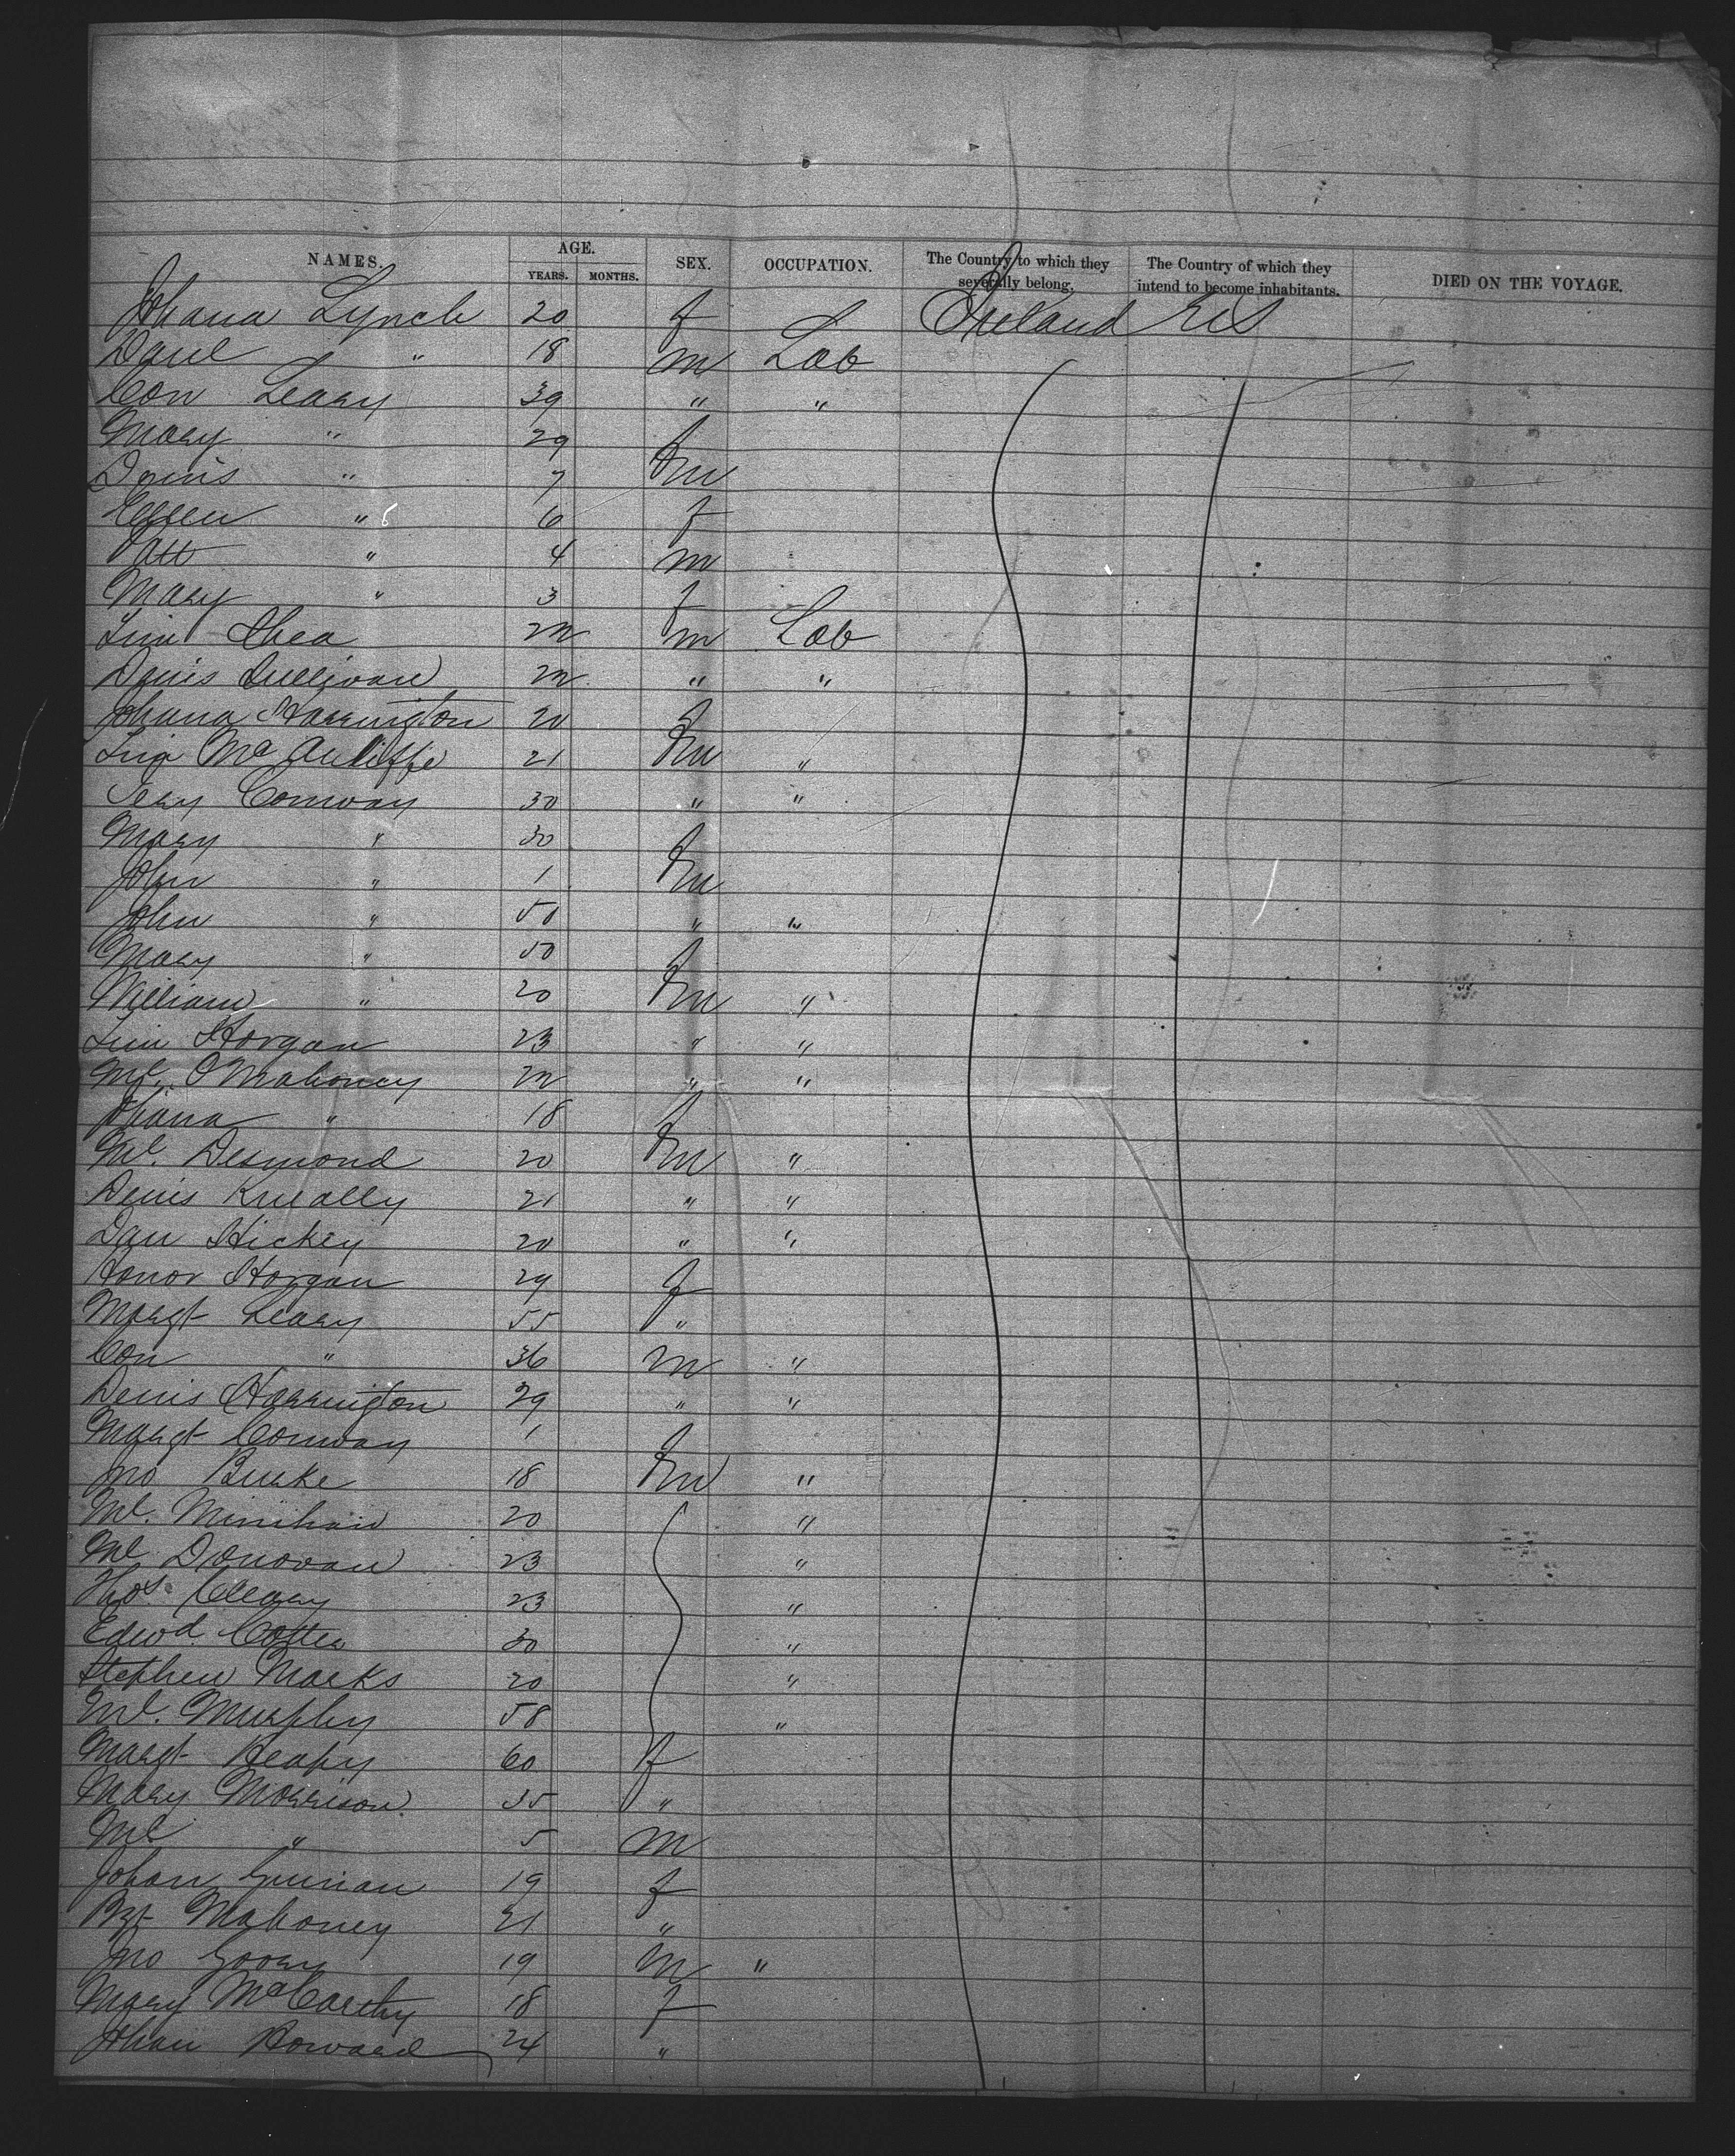 NAMES. AGE. SEX. OCCUPATION. The Country to which they severally belong. The Country of which they intend to become inhabitants. DIED ON THE VOYAGE.
YEARS. MONTHS.
Johana Lynch 20 f Ireland US
Danl " 18 m Lab
Con Leary 39 " "
Mary " 29 f
Denis " 7 m
Ellen " 6 f
Patt " 4 m
Mary " 3 f
Tim Shea 22 m Lab
Denis Sullivan 22 " "
Johana Harrington 20 f
Tim McAuliffe 21 m "
Jery Conway 30 " "
Mary " 30 f
John " 1 m
John " 50 " "
Mary " 50 f
William " 20 m "
Tim Horgan 23 " "
Ml. O'Mahoney 22 " "
Johana " 18 f
Ml. Desmond 20 m "
Denis Kneally 21 " "
Dan Hickey 20 " "
Honor Horgan 29 f
Margt Leary 55 "
Con " 36 m "
Denis Harrington 29 " "
Margt Conway 1 f
Jno Burke 18 m "
Ml. Minihan 20 "
Ml. Donovan 23 "
Thos. Cleary 23 "
Edwd. Cotter 30 "
Stephen Marks 20 "
Ml. Murphy 58 "
Margt Heaphy 60 f
Mary Morrison 35 "
Ml " 5 m
Johan 19 f
Bgt Mahoney 21 "
Jno 19 m "
Mary McCarthy 18 f
Johan Howard 24 "